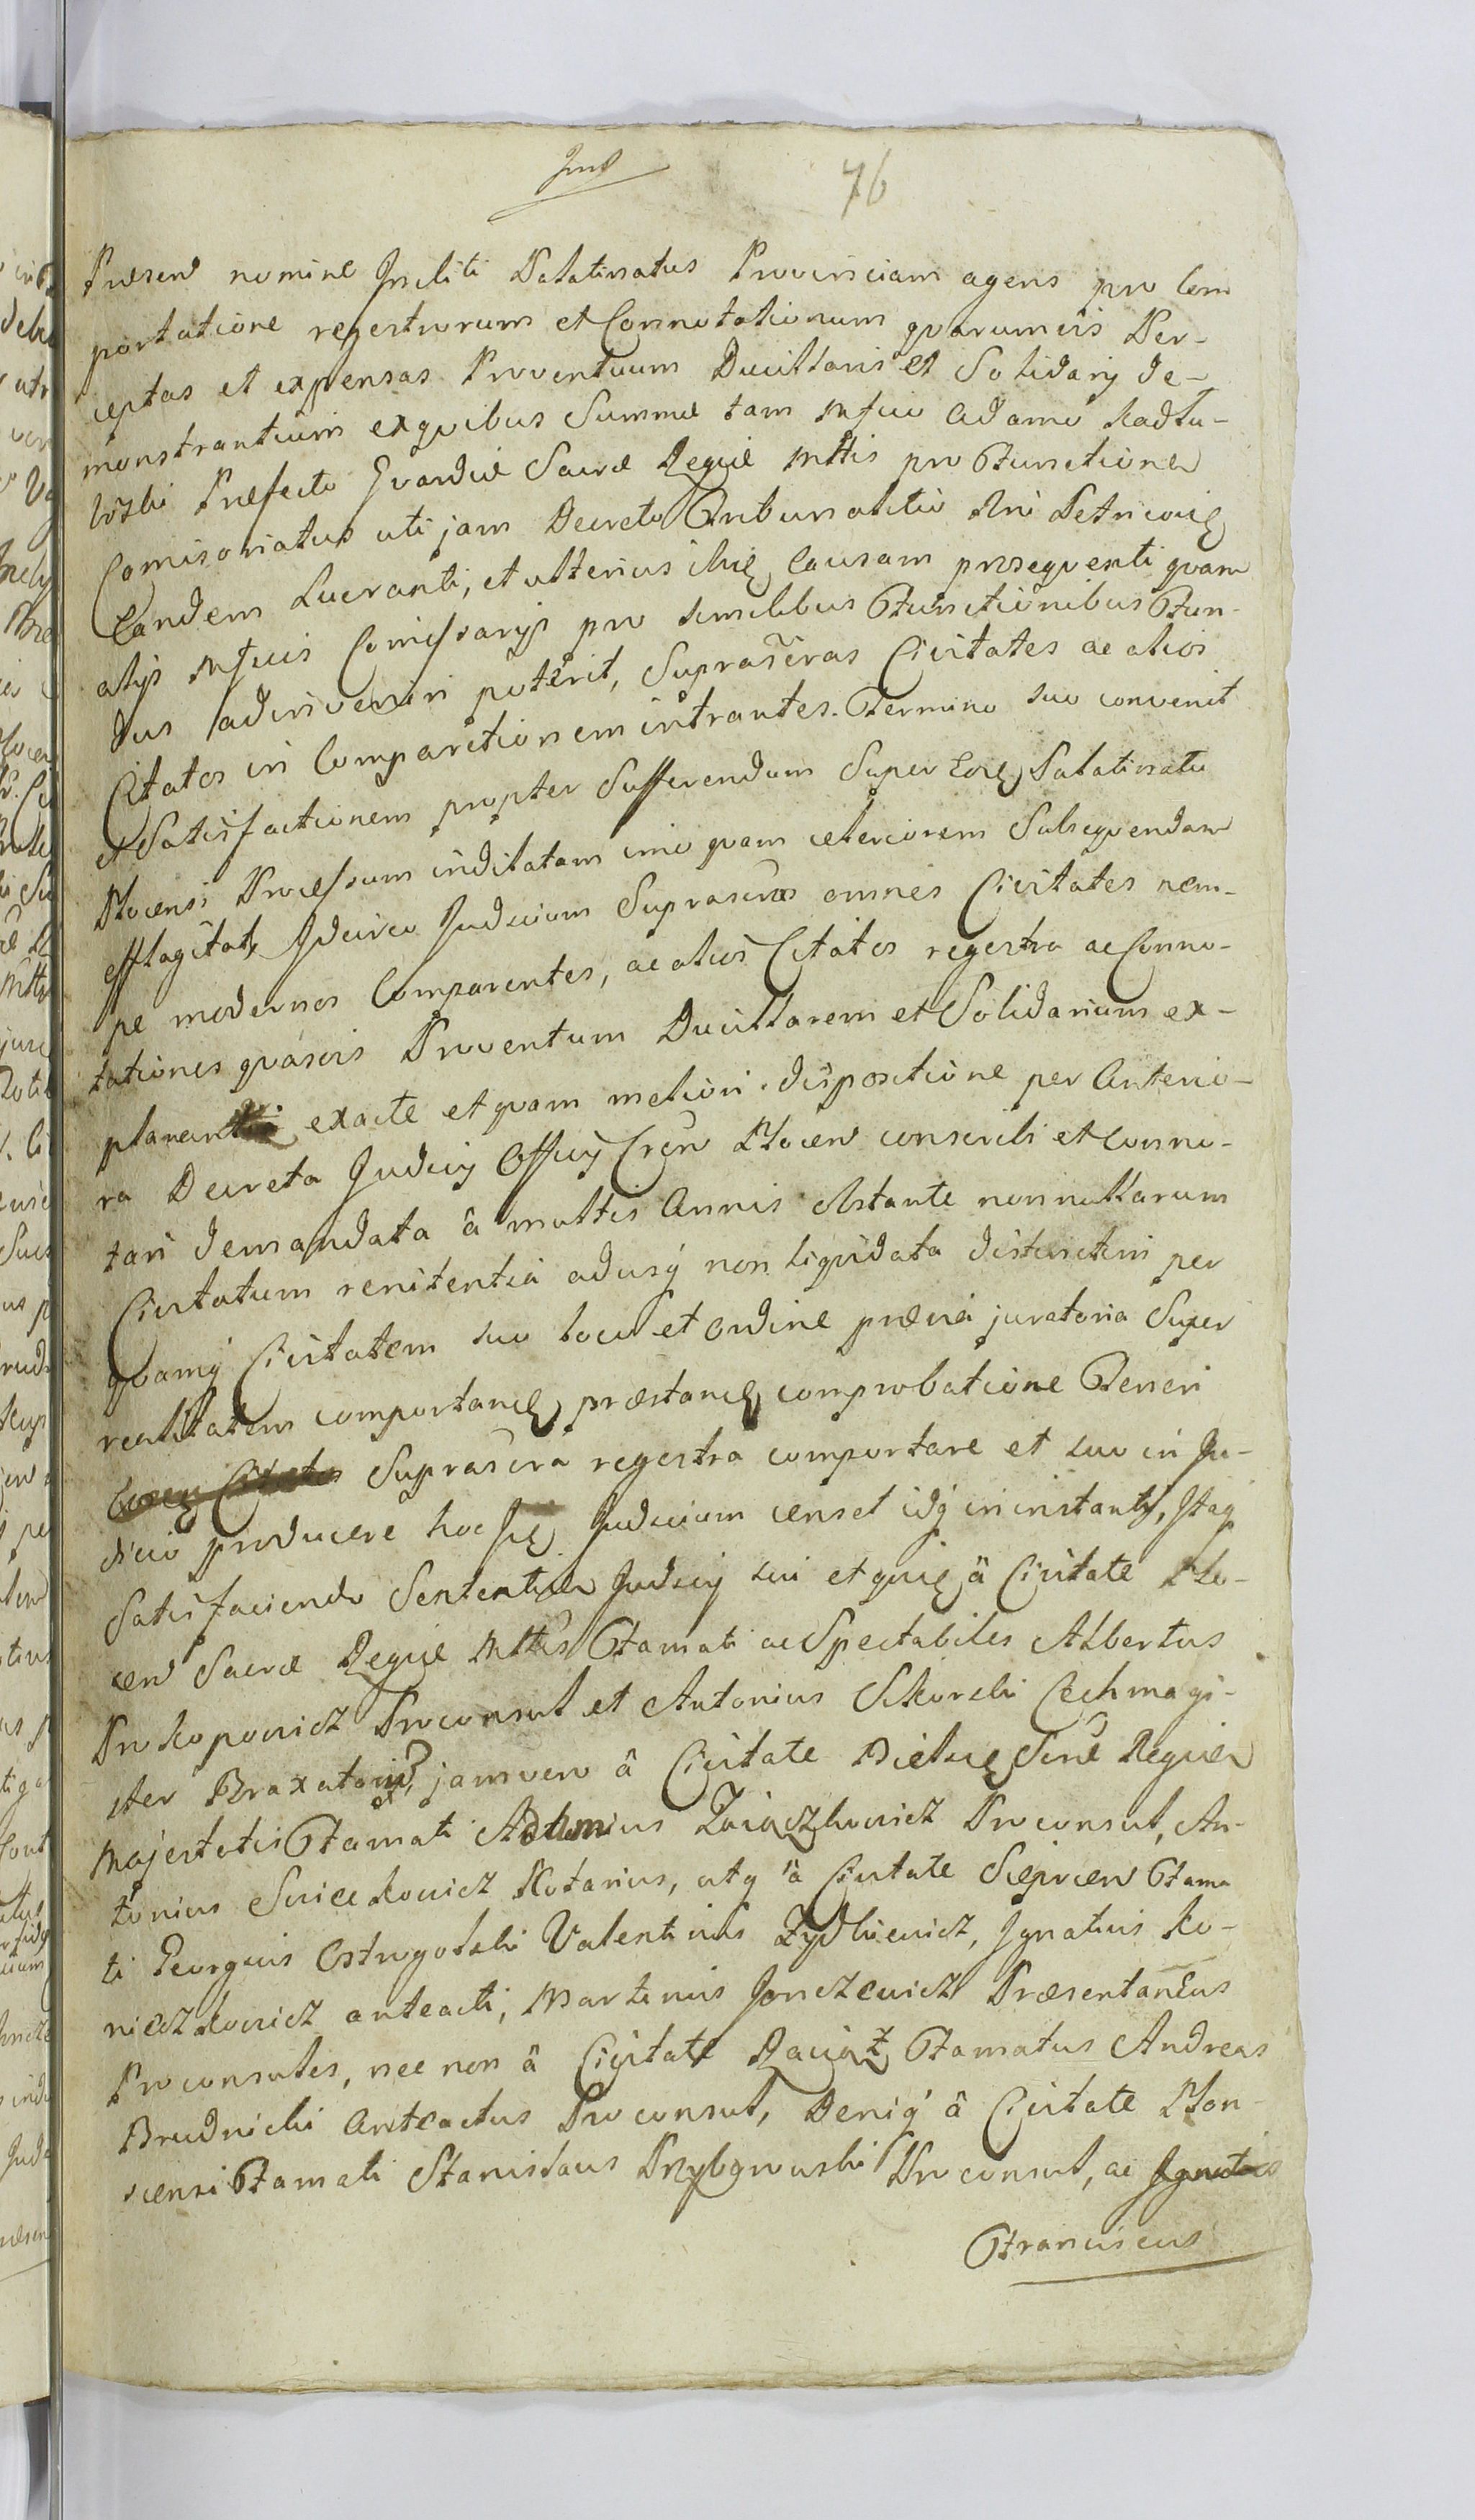 76
Præsens nomine Incliti Palatinatus Provinciam agens pro Com
portatione regestrorum et Connotationum quarumvis Per-
ceptas et expensas Proventuum Ducillaris et Solidarij de-
monstrantium exquibus Summæ tam Mfico Adamo
Præfecto Gvardiæ Sacræ Regiæ Mttis pro Functione
Comisoriatus uti jam Decreto Tribunalitio Rni Petricoviæ
Eandem Lucranti, et ulterius hic causam prosequenti quam
alijs Mficis Comissarijs pro similibus Functionibus Fun-
dus adinveniri poterit, Suprascras Civitates ac alios
Citatos in Comparitionem intrantes. Termino suo convenit
et Satisfactionem propter Sufferendum Super Palatinatu
Plocensi Processum inditatam imo quam celeriorem Subsequendam
efflagitat, Idcirco Judicium Suprascras omnes Civitates nem-
pe modernos Comparentes, ac alios Citatos regestra ac Conno-
tationes quasvis Proventum Ducillarem et Solidarium ex-
exacte et quam meliori dispositione per Anterio-
ra Decreta Judicij Officij Cren Plocen conscribi et Conno-
tari demandata â multis Annis obstante nonnullarum
Civitatum renitentia adusq non liquidata distinctim per
quamq Civitatem suo loco et Ordine prævia juratoria Super
realitatem comportand præstand comprobatione Teneri
Suprascra regestra comportare et suo in Ju-
dicio producere hoc Judicium censet idq in instanti, Itaq
Satisfaciendo Sententiæ Judicij sui et quid â Civitate Plo-
cen Sacræ Regiæ Mttis Famati ac Spectabiles Albertus
Prokopowicz Proconsul et Antonius Sikorski Cechmagi-
ster Braxatorum, jamvero â Civitate Bielsc Scræ Regiæ
Majestatis Famati Zaiączkowicz Proconsul, An-
tonius Notarius, utq â Civitate Sieprcen Fama
ti Georgius Ostrogolski Valentinus Zydkiewicz, Ignatius Ko-
nieczkowicz anteacti, Martinus Janczewicz Præsentaneus
Proconsules, nec non â Civitate Raciąz Famatus Andreas
Brudnicki Anteactus Proconsul, Deniq â Civitate Plon-
scensi Famati Stanislaus Przybyrowski Proconsul, ac
Franciscus